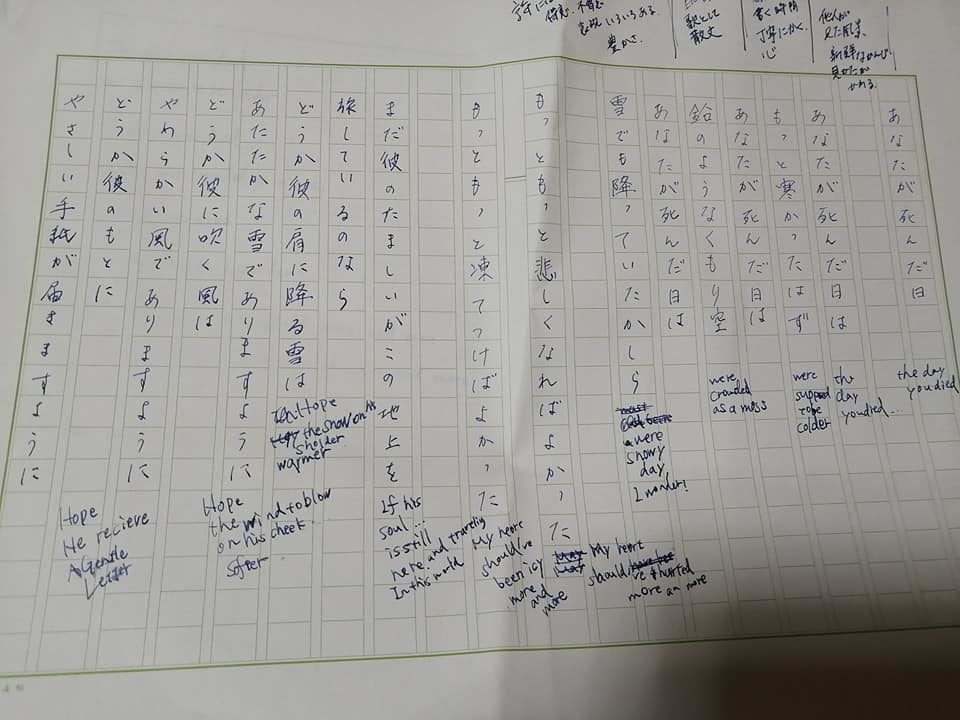 他人が
見た風景、
新鮮なかんじ、
見かたが
かわる。
書く時間
丁寧にかく、
心
散文
得意、不得意
表現いろいろある。
豊かさ。
あなたが死んだ日
あなたが死んだ日は
もっと寒かったはず
あなたが死んだ日は
鈴のようなくもり空
あなたが死んだ日は
雪でも降っていたかしら
もっともっと悲しくなればよかった
もっともっと凍てつけばよかった
まだ彼のたましいがこの地上を
旅しているのなら
どうか彼の肩に降る雪は
あたたかな雪でありますように
どうか彼に吹く風は
やわらかい風でありますように
どうか彼のもとに
やさしい手紙が届きますように
the day
you died
the
day
you died...
were
suppose
to be
colder
were
crowded
as a moss
were
snowy
day,
I wonder!
My heart
should've hurted
more an more
My heart
should've
been icy
more
and
more
If his
soul...
is still
here and traveling
In this world
Hope
the snow on his
sholder
warmer
Hope
the wind to blow
on his cheek
softer
Hope
He recieve
A Gentle
Letter